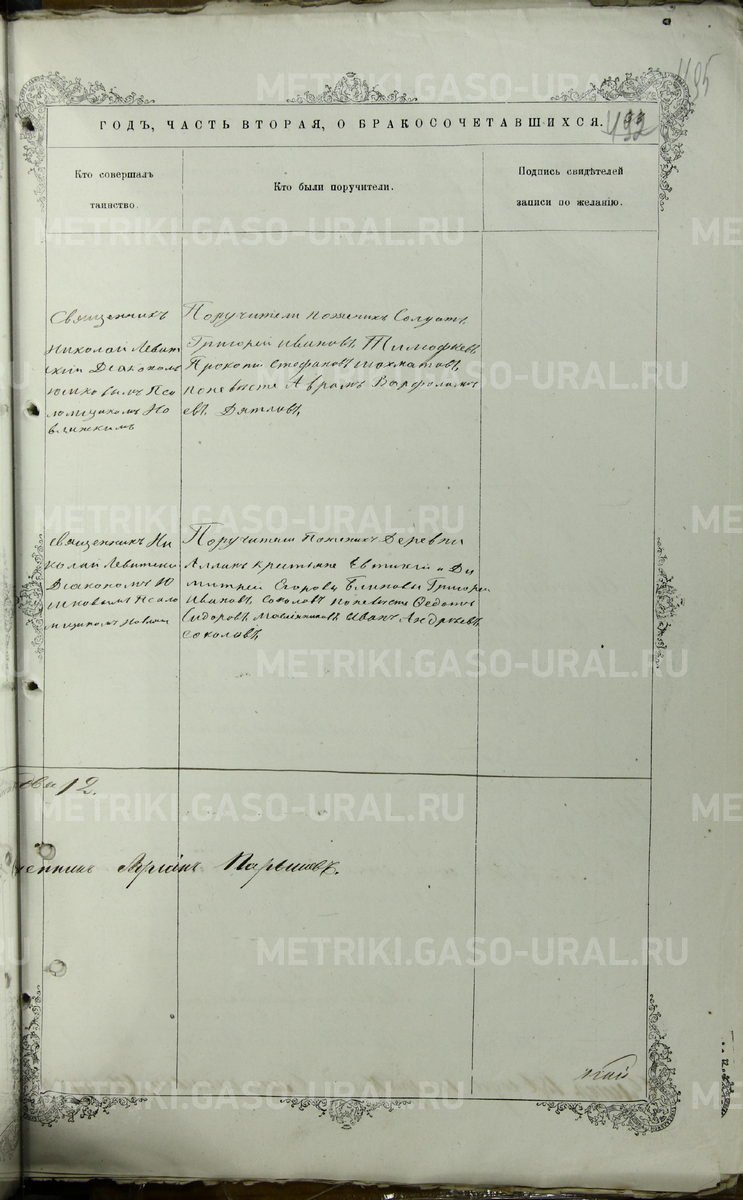 495
ГОДЪ, ЧАСТЬ ВТОРАЯ, О БРАКОСОЧЕТАВШИХСЯ.
Кто совершалъ
таинство.
Кто были поручители.
Подпись свидѣтелей
записи по желанію.
Священникъ
Николай Левит
скій Діакономъ
Юшковымъ Псо
ломщикомъ Но
Поручители по женихѣ Солдатъ,
Григорей Ивановъ Тимофѣевъ,
Прокопи Стефановъ Шахматовъ,
по невѣсте Аврамъ Варфоломе
евъ Дятловъ,
Священникъ Ни
колай Левитски
Діакономъ Ю
шковымъ Псало
мщикомъ
Поручители По женихѣ Деревни
крестьяне Евтихій и Ди
митрей Егоровы Блиновы Григорей
Ивановъ Соколовъ по невѣсте Федотъ
Сидоровъ Иванъ Андреевъ
Соколовъ,
12.
METRIKI.GASO-URAL.RU